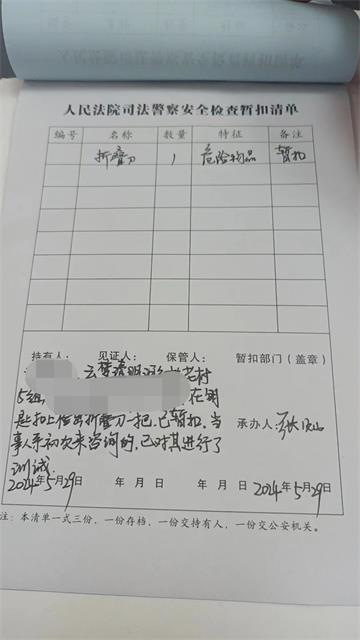 人民法院司法警察安全检查暂扣清单
编号 名称 数量 特征 备注
折叠刀 1 危险物品 暂扣
持有人： 见证人： 保管人： 暂扣部门（盖章）
村
5组 在钥
匙扣上检出折叠刀一把，已暂扣，当
承办人：张
事人系初次来咨询的，已对其进行了
训诫.
2024年5月29日 年 月 日 年 月 日 2024年5月29日
注：本清单一式三份，一份存档，一份交持有人，一份交公安机关。